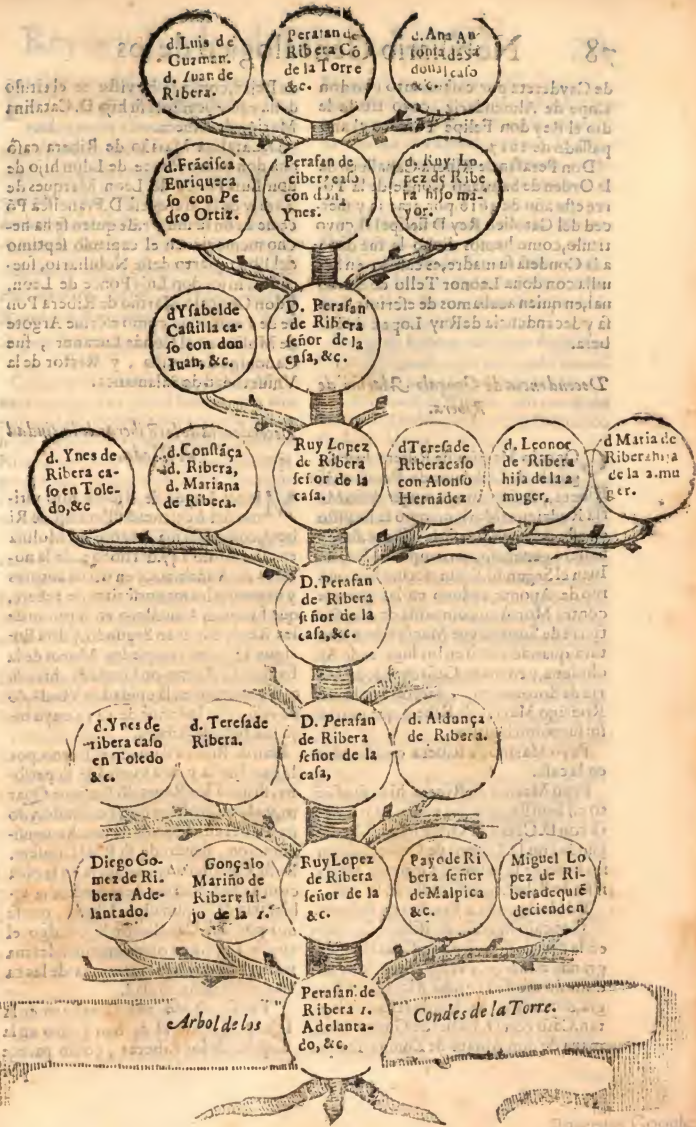 d. Luis de
Guzman.
d. Iuan de
Ribera.
Perafan de
Ribera Cõ
de la Torre
&c.
d. Ana An
tonia
caso
&c.
d. Frãcisca
Enriqueca
so con Pe
dro Ortiz.
Perafan de
ribera caso
con doña
Ynes.
d. Ruy Lo
pez de Ribe
ra hijo ma-
yor.
dYsabelde
Castilla ca-
so con don
Iuan, &c.
D. Perafan
de Ribera
señor de la
casa, &c.
d. Ynes de
Ribera ca-
so en Tole-
do, &c
d. Constãça
d. Ribera,
d. Mariana
de Ribera.
Ruy Lopez
de Ribera
señor de la
casa.
dTeresade
Riberacaso
con Alonso
Hernãdez
d. Leonor
de Ribera
hija de la 2
muger.
d Maria de
Riberahija
de la 2. mu
ger.
D. Perafan
de Ribera
señor de la
casa, &c.
d. Ynes de
ribera caso
en Toledo
&c.
d. Teresade
Ribera.
D. Perafan
de Ribera
señor de la
casa,
d. Aldonça
de Ribera.
Diego Go-
mez de Ri-
bera Ade-
lantado.
Gonçalo
Mariño de
Ribera hi-
jo de la 1.
Ruy Lopez
de Ribera
señor de la
&c.
Payo de Ri
bera señor
de Malpica
&c.
Miguel Lo
pez de Ri-
beradequiẽ
decienden
Perafan de
Ribera 1.
Adelanta-
do, &c.
Arbol de los Condes de la Torre.